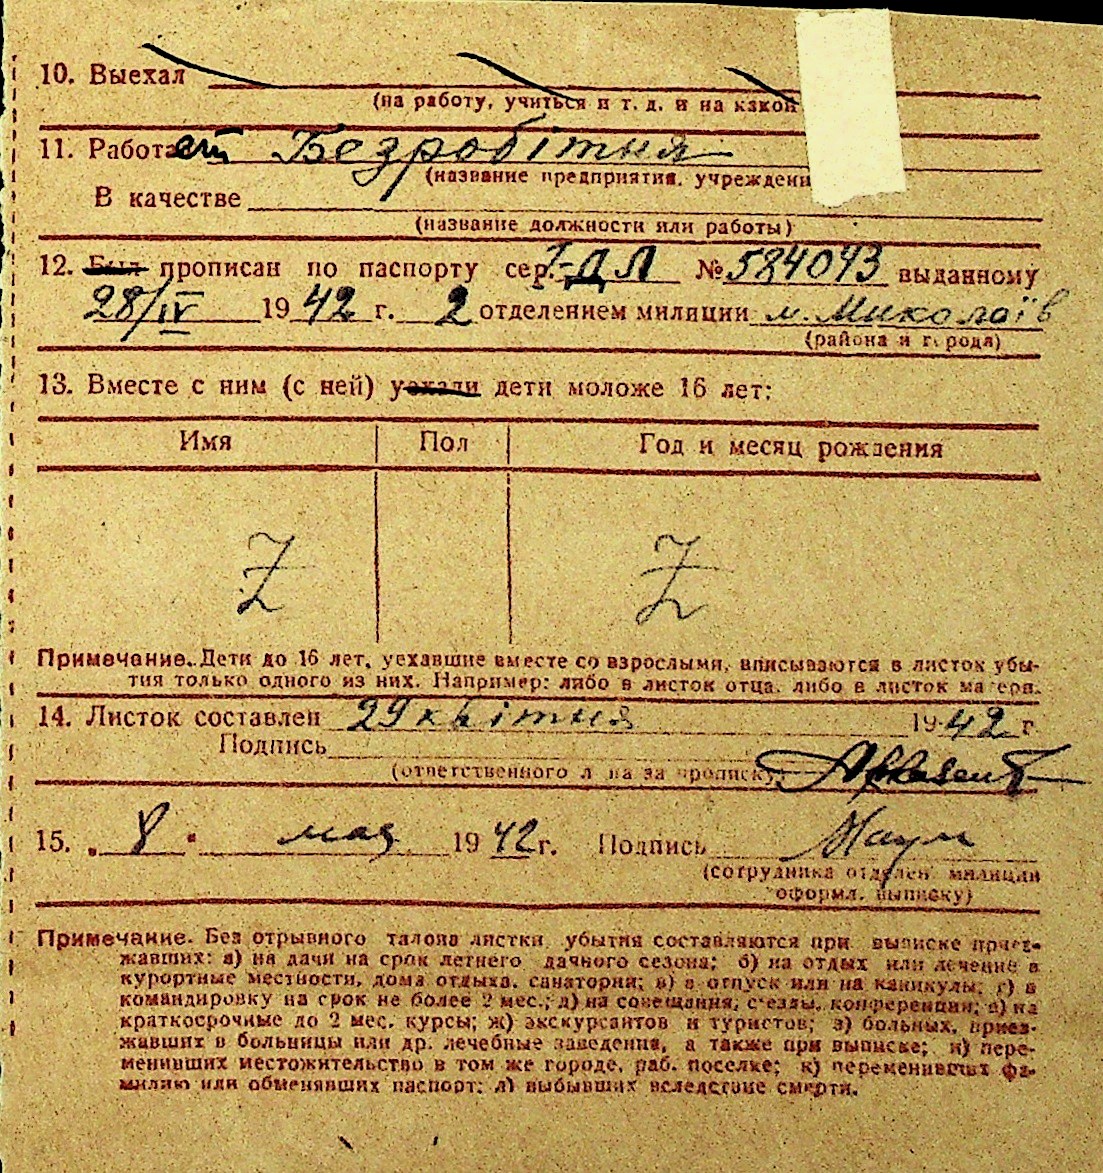 10. Выехал
(на работу, учиться и т. д. и на какой
11. Работает Безробітня
(название предприятия, учрежден
В качестве
(название должности или работы)
12. Был прописан по паспорту сер. ДЛ № 584093 выданному
28/IV 1942 г. 2 отделением милиции м. Миколаїв
(района и города)
13. Вместе с ним (с ней) уехали дети моложе 16 лет:
Имя Пол Год и месяц рождения
Z Z
Примечание. Дети до 16 лет, уехавшие вместе со взрослыми, вписываются в листок убы-
тия только одного из них. Например: либо в листок отца, либо в листок матери.
14. Листок составлен 29 квітня 1942 г
Подпись
(ответственного лица за прописку)
15. „8" мая 1942 г. Подпись
(сотрудника отделен. милиции
оформл. выписку)
Примечание. Без отрывного талона листки убытия составляются при выписке приез-
жавших: а) на дачи на срок летнего дачного сезона; б) на отдых или лечение в
курортные местности, дома отдыха, санатории; в) в отпуск или на каникулы; г) в
командировку на срок не более 2 мес.; д) на совещания, съезды, конференции; е) на
краткосрочные до 2 мес. курсы; ж) экскурсантов и туристов; з) больных, приез-
жавших в больницы или др. лечебные заведения, а также при выписке; и) пере-
менивших местожительство в том же городе, раб. поселке; к) переменивших фа-
милию или обменявших паспорт; л) выбывших вследствие смерти.